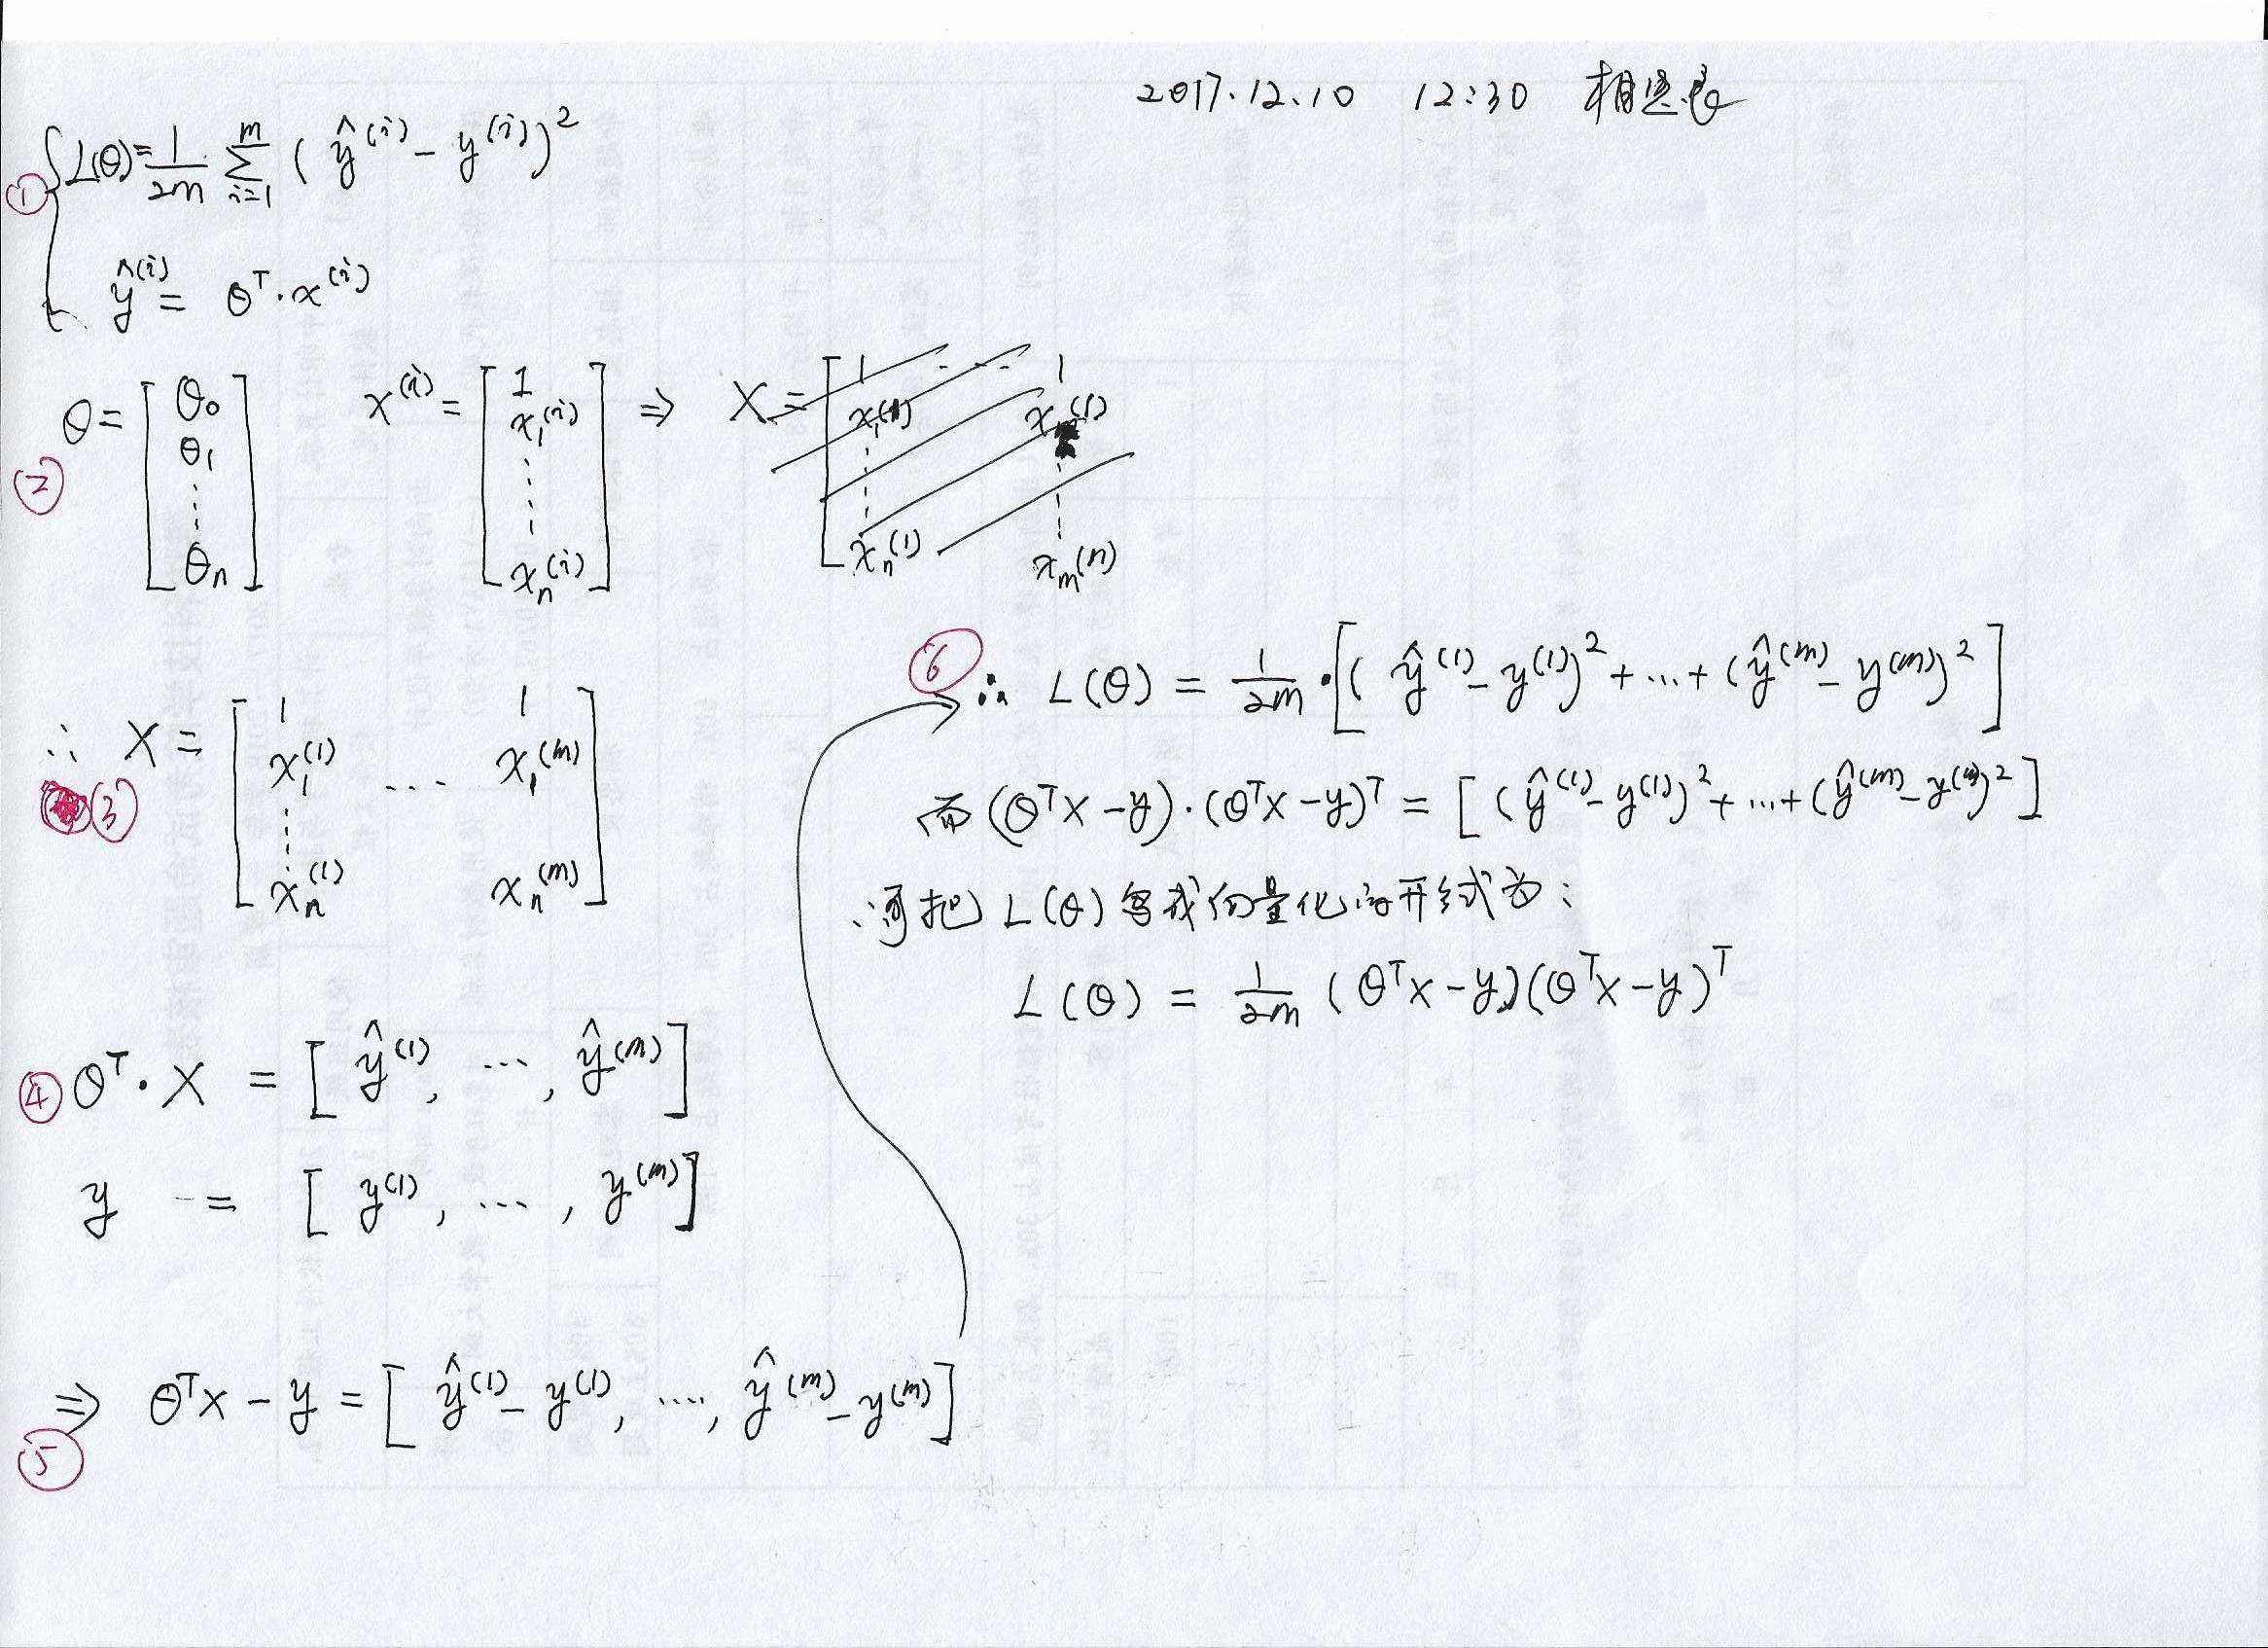 2017.12.10 12:30 相思
① { L(θ) = 1/2m ∑_{i=1}^{m} ( ŷ^(i) - y^(i) )^2
ŷ^(i) = θ^T · x^(i)
② θ = [ θ_0 θ_1 ⋮ θ_n ] x^(i) = [ 1 x_1^(i) ⋮ x_n^(i) ] ⇒ X = [ 1 … 1 x_1^(1) ⋮ x_n^(1) x_m^(n)
∴ X = [ 1 x_1^(1) ⋮ x_n^(1) … 1 x_1^(m) x_n^(m) ]
③
④ θ^T · X = [ ŷ^(1), …, ŷ^(m) ]
y = [ y^(1), …, y^(m) ]
⇒ θ^T X - y = [ ŷ^(1) - y^(1), …, ŷ^(m) - y^(m) ]
⑤
⑥ ∴ L(θ) = 1/2m · [ ( ŷ^(1) - y^(1) )^2 + … + ( ŷ^(m) - y^(m) )^2 ]
而 (θ^T X - y) · (θ^T X - y)^T = [ ( ŷ^(1) - y^(1) )^2 + … + ( ŷ^(m) - y^(m) )^2 ]
∴可把 L(θ) 写成向量化的形式为:
L(θ) = 1/2m (θ^T X - y)(θ^T X - y)^T